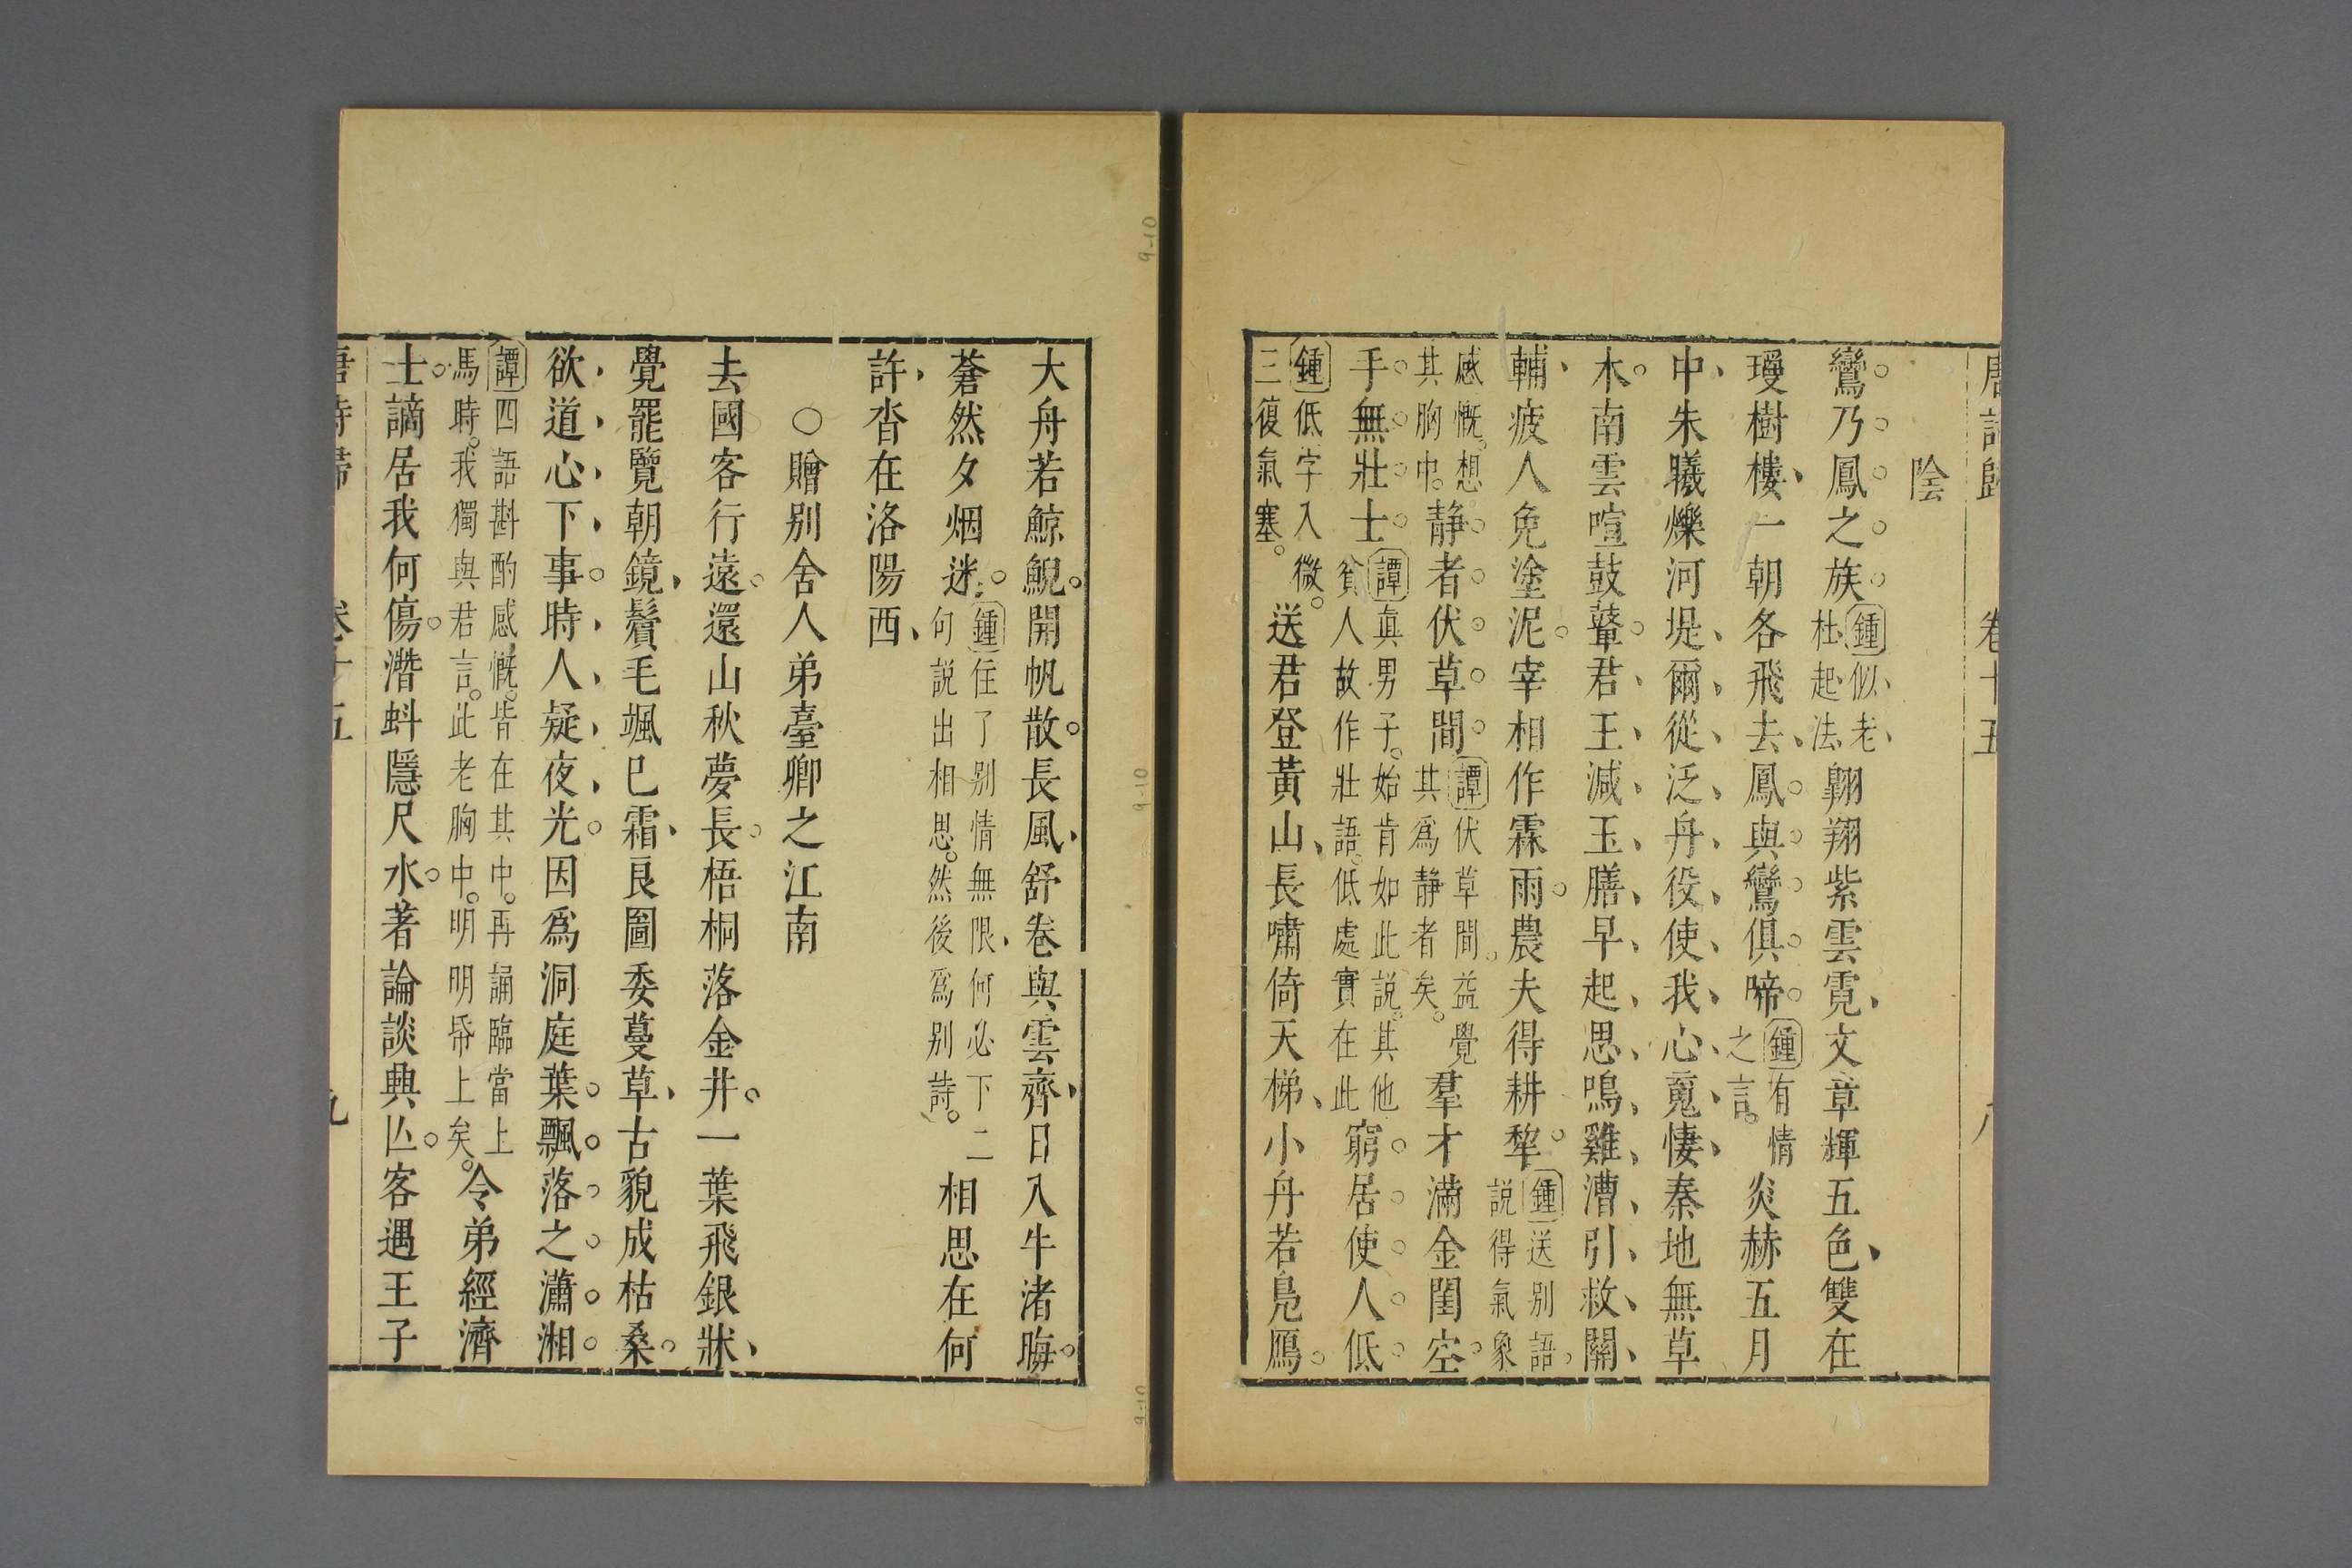 唐詩歸 卷十五 八
陰
鸞乃鳳之族鍾似老杜起法翺翔紫雲霓文章輝五色雙在
瑷樹樓一朝各飛去鳳與鸞俱啼鍾有情之言炎赫五月
中朱曦爍河堤爾從泛舟役使我心䰟悽秦地無草
木南雲喧鼓鼙君王減玉膳早起思鳴雞漕引救關
輔疲人免塗泥宰相作霖雨農夫得耕犂鍾送別語說得氣象
感慨想其胸中靜者伏草間譚伏草間益覺其爲靜者矣羣才滿金閨空
手無壯士譚眞男子始肯如此說其他貧人故作壯語低處實在此窮居使人低
鍾低字入微三復氣塞送君登黃山長嘯倚天梯小舟若鳧鴈
大舟若鯨鯢開帆散長風舒卷與雲齊日入牛渚晦
蒼然夕烟迷鍾住了別情無限何必下二句說出相思然後爲別詩相思在何
許杳在洛陽西
○贈別舍人弟臺卿之江南
去國客行遠還山秋夢長梧桐落金井一葉飛銀牀
覺罷覽朝鏡鬢毛颯已霜良圖委蔓草古貌成枯桑
欲道心下事時人疑夜光因爲洞庭葉飄落之瀟湘
譚四語斟酌感慨皆在其中再誦臨當上馬時我獨與君言此老胸中明明昂上矣令弟經濟
士謫居我何傷潛虯隱尺水著論談興亾客遇王子
唐詩歸 卷十五 九
9-10
9-10
9-10